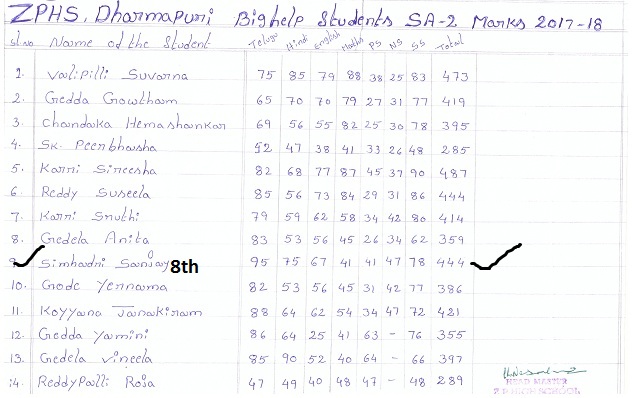 ZPHS, Dharmapuri Bighelp Students SA-2 Marks 2017-18
Sl.no Name of the Student Telugu Hindi English Maths PS NS SS Total
1. Valipilli Suvarna 75 85 79 88 38 25 83 473
2. Gedda Gowtham 65 70 70 79 27 31 77 419
3. Chandaka Hemashankar 69 56 55 82 25 30 78 395
4. SK. Peerbhasha 52 47 38 41 33 26 48 285
5. Karri Sireesha 82 68 77 87 45 37 90 487
6. Reddy Suseela 85 56 73 84 29 31 86 444
7. Karri Sruthi 79 59 62 58 34 42 80 414
8. Gedela Anita 83 53 56 45 26 34 62 359
9. Simhadri Sanjay 8th 95 75 67 41 41 47 78 444
10. Gode Yerrama 82 53 56 45 31 42 77 386
11. Koyyana Janakiram 88 64 62 54 34 47 72 421
12. Gedda Yamini 86 64 25 41 63 - 76 355
13. Gedela Vineela 85 90 52 40 64 - 66 397
14. ReddyPalli Roja 47 49 40 48 47 - 48 289
HEAD MASTER
Z.P.HIGH SCHOOL